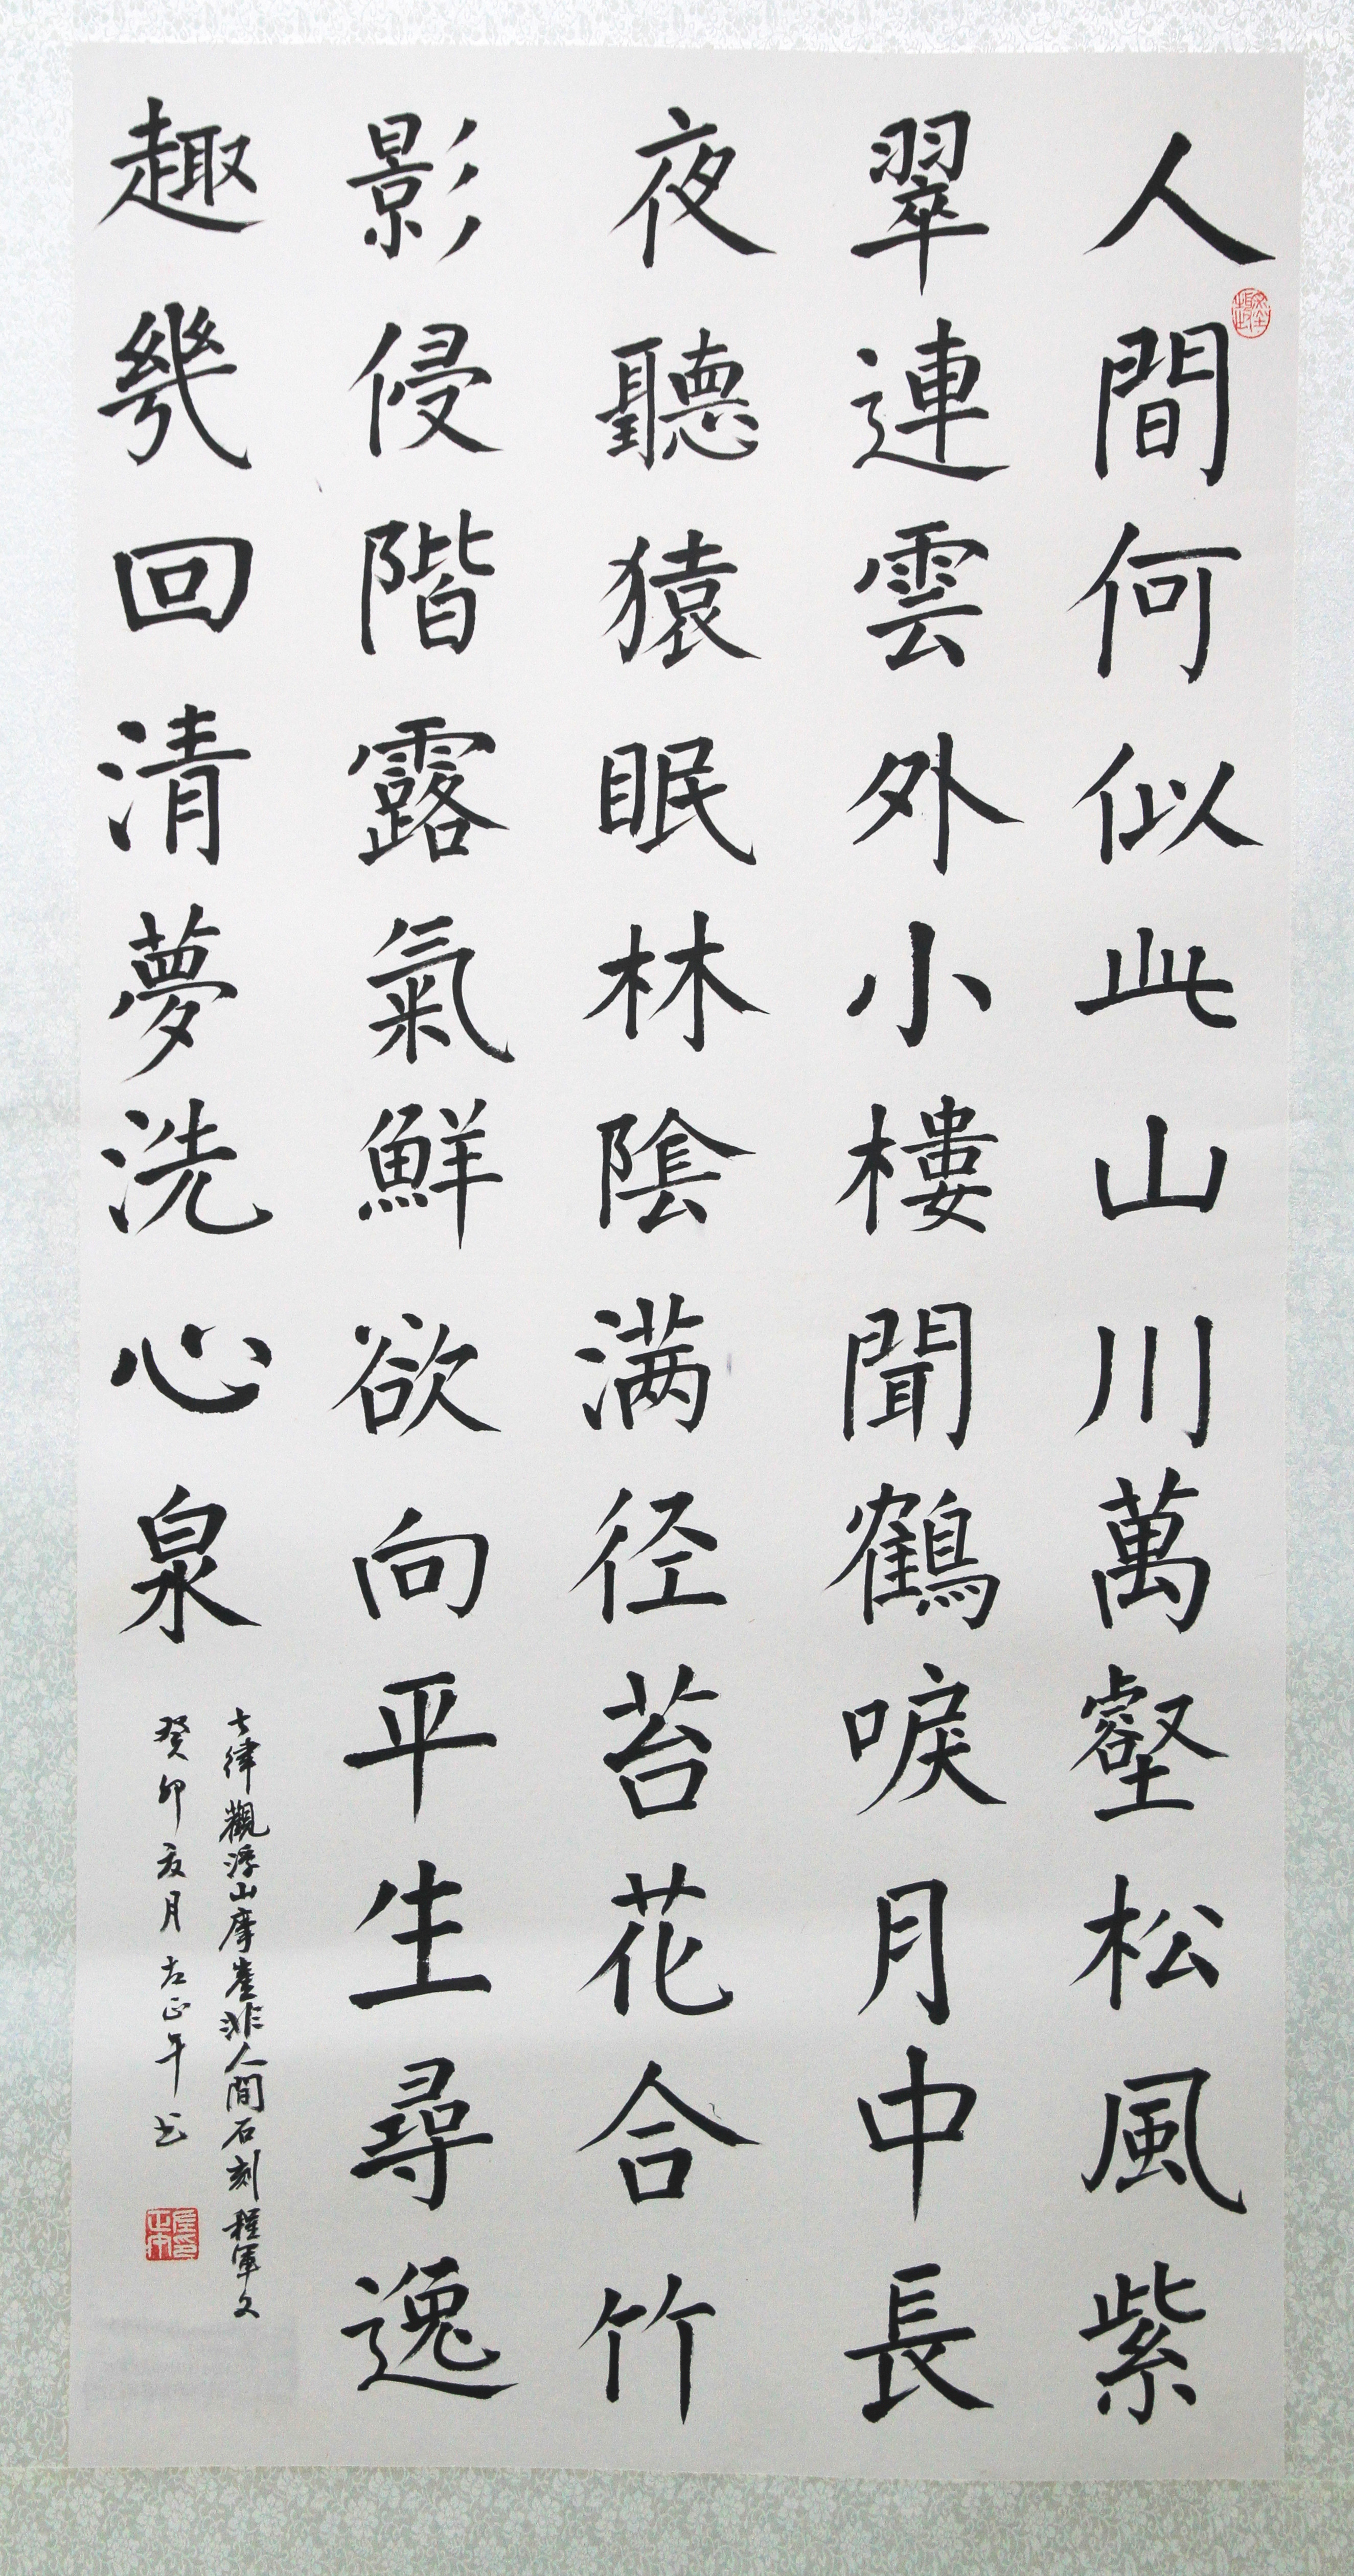 人間何似此山川萬壑松風紫
翠連雲外小樓聞鶴唳月中長
夜聽猿眠林陰满径苔花合竹
影侵階露氣鮮欲向平生尋逸
趣幾回清夢洗心泉
七律觀浮山摩崖非人間石刻程軍文
癸卯亥月左正午书